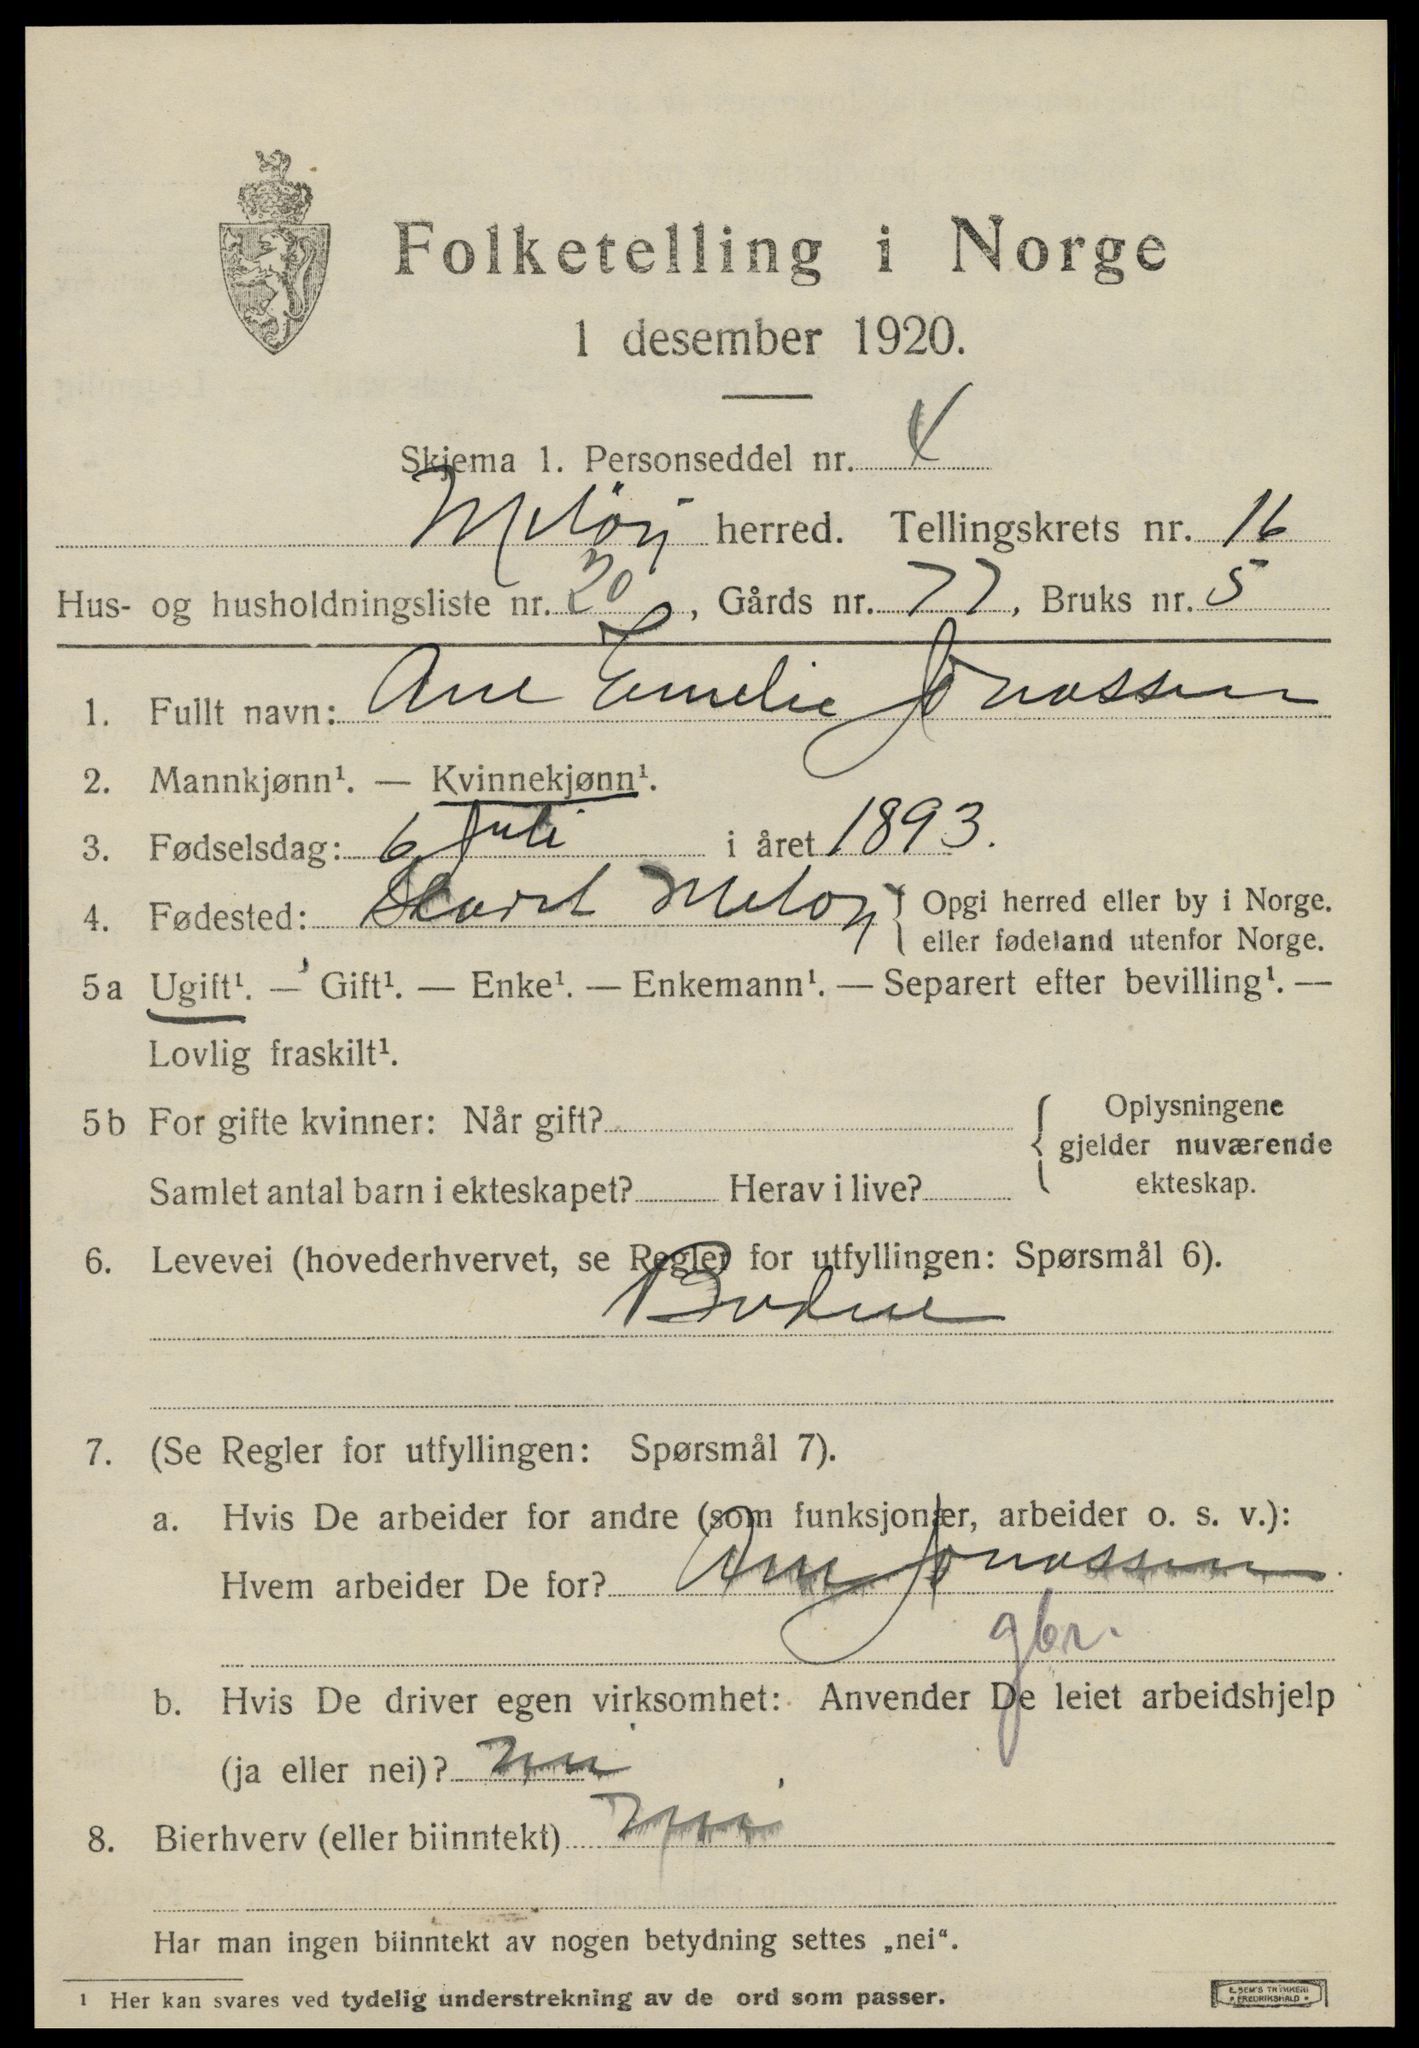 Folketelling i Norge
1 desember 1920.
Skjema 1. Personseddel nr. 4
Meløy herred. Tellingskrets nr. 16
Hus- og husholdningsliste nr. 20, Gårds nr. 77, Bruks nr. 5
1. Fullt navn: Ane Emelie Jonassen
2. Mannkjønn¹. — Kvinnekjønn¹.
3. Fødselsdag: 6 Juli i året 1893.
4. Fødested: Meloy { Opgi herred eller by i Norge.
eller fødeland utenfor Norge.
5a Ugift¹. — Gift¹. — Enke¹. — Enkemann¹. — Separert efter bevilling¹. —
Lovlig fraskilt¹.
5b For gifte kvinner: Når gift? { Oplysningene
gjelder nuværende
Samlet antal barn i ekteskapet? Herav i live? ekteskap.
6. Levevei (hovederhvervet, se Regler for utfyllingen: Spørsmål 6).
Budeie
7. (Se Regler for utfyllingen: Spørsmål 7).
a. Hvis De arbeider for andre (som funksjonær, arbeider o. s. v.):
Hvem arbeider De for? Jonassen
gbr.
b. Hvis De driver egen virksomhet: Anvender De leiet arbeidshjelp
(ja eller nei)? nei
8. Bierhverv (eller biinntekt) nei
Har man ingen biinntekt av nogen betydning settes „nei“.
¹ Her kan svares ved tydelig understrekning av de ord som passer.
E. SEM'S TRYKKERI
FREDRIKSHALD